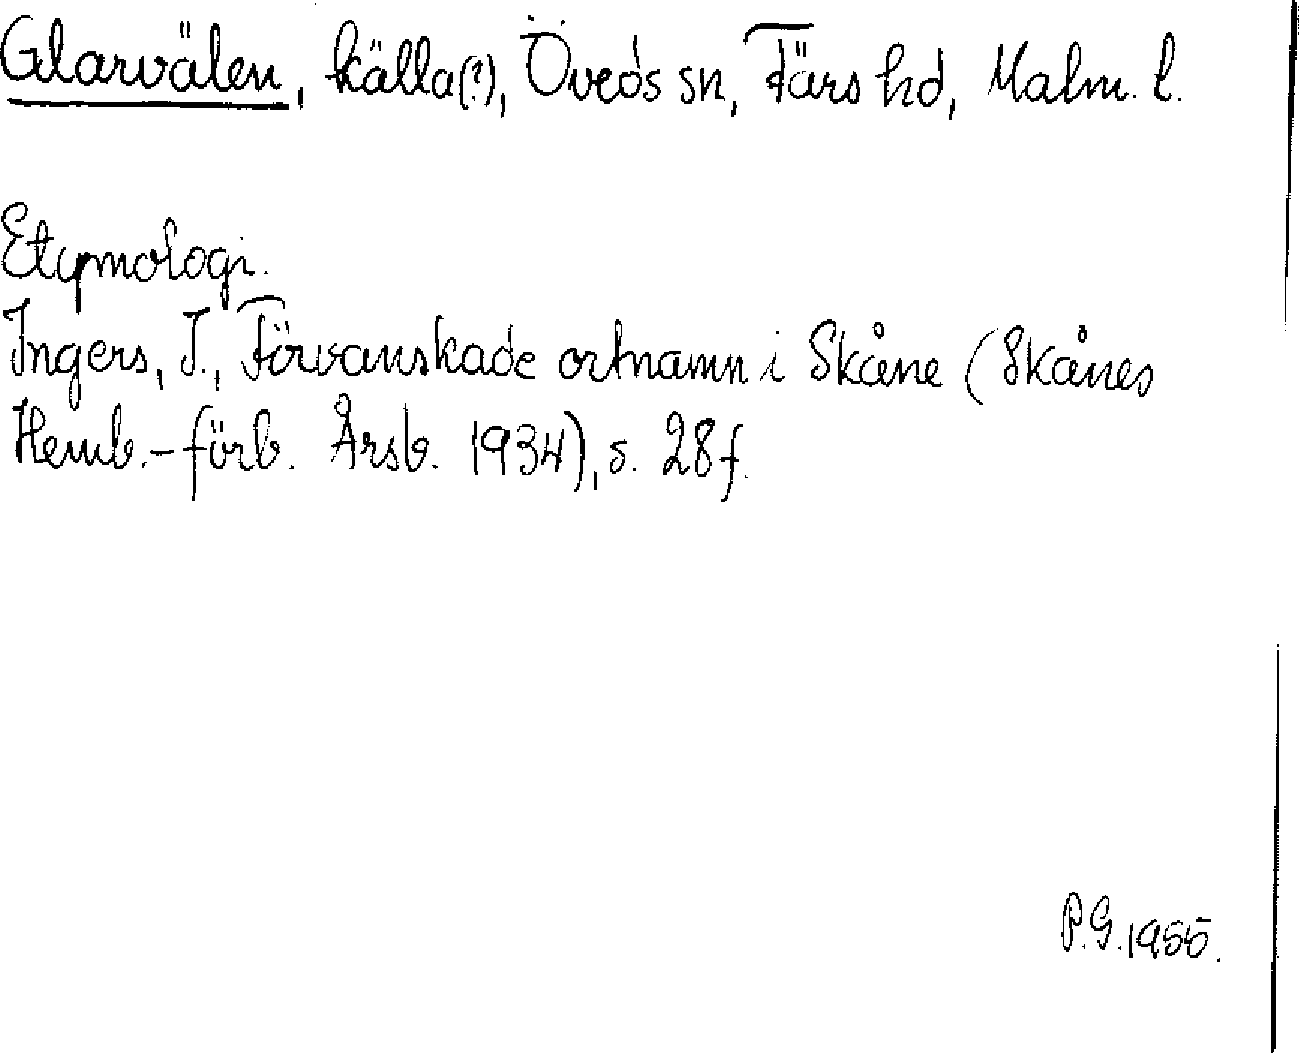 Glarvälen, källa(?), Öveds sn, Färs hd, Malm. l.
Etymologi.
Ingers, I., Förvanskade ortnamn i Skåne (Skånes
Hemb.-förb. Årsb. 1934), s. 28f.
P.G. 1955.